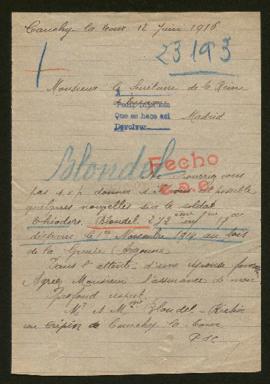 Cauchy la tour 12 Juin 1916
23193
1
Monsieur le Secrétaire de la Reine
Madrid
Que se hace así
Devolver
Blondel
Fecho
pourriez vous
pas s.v.p. donner si possible
quelques nouvelles sur le soldat
Théodore Blondel 272 eme inf
disparu le 1er Novembre 1914 au bois
de la Grurie Argonne
Dans l'attente d'une réponse
Agréez Monsieur l'assurance de mon
Profond respect
Mr et Mme Blondel
au Crépin de Cauchy la tour
P.d.C